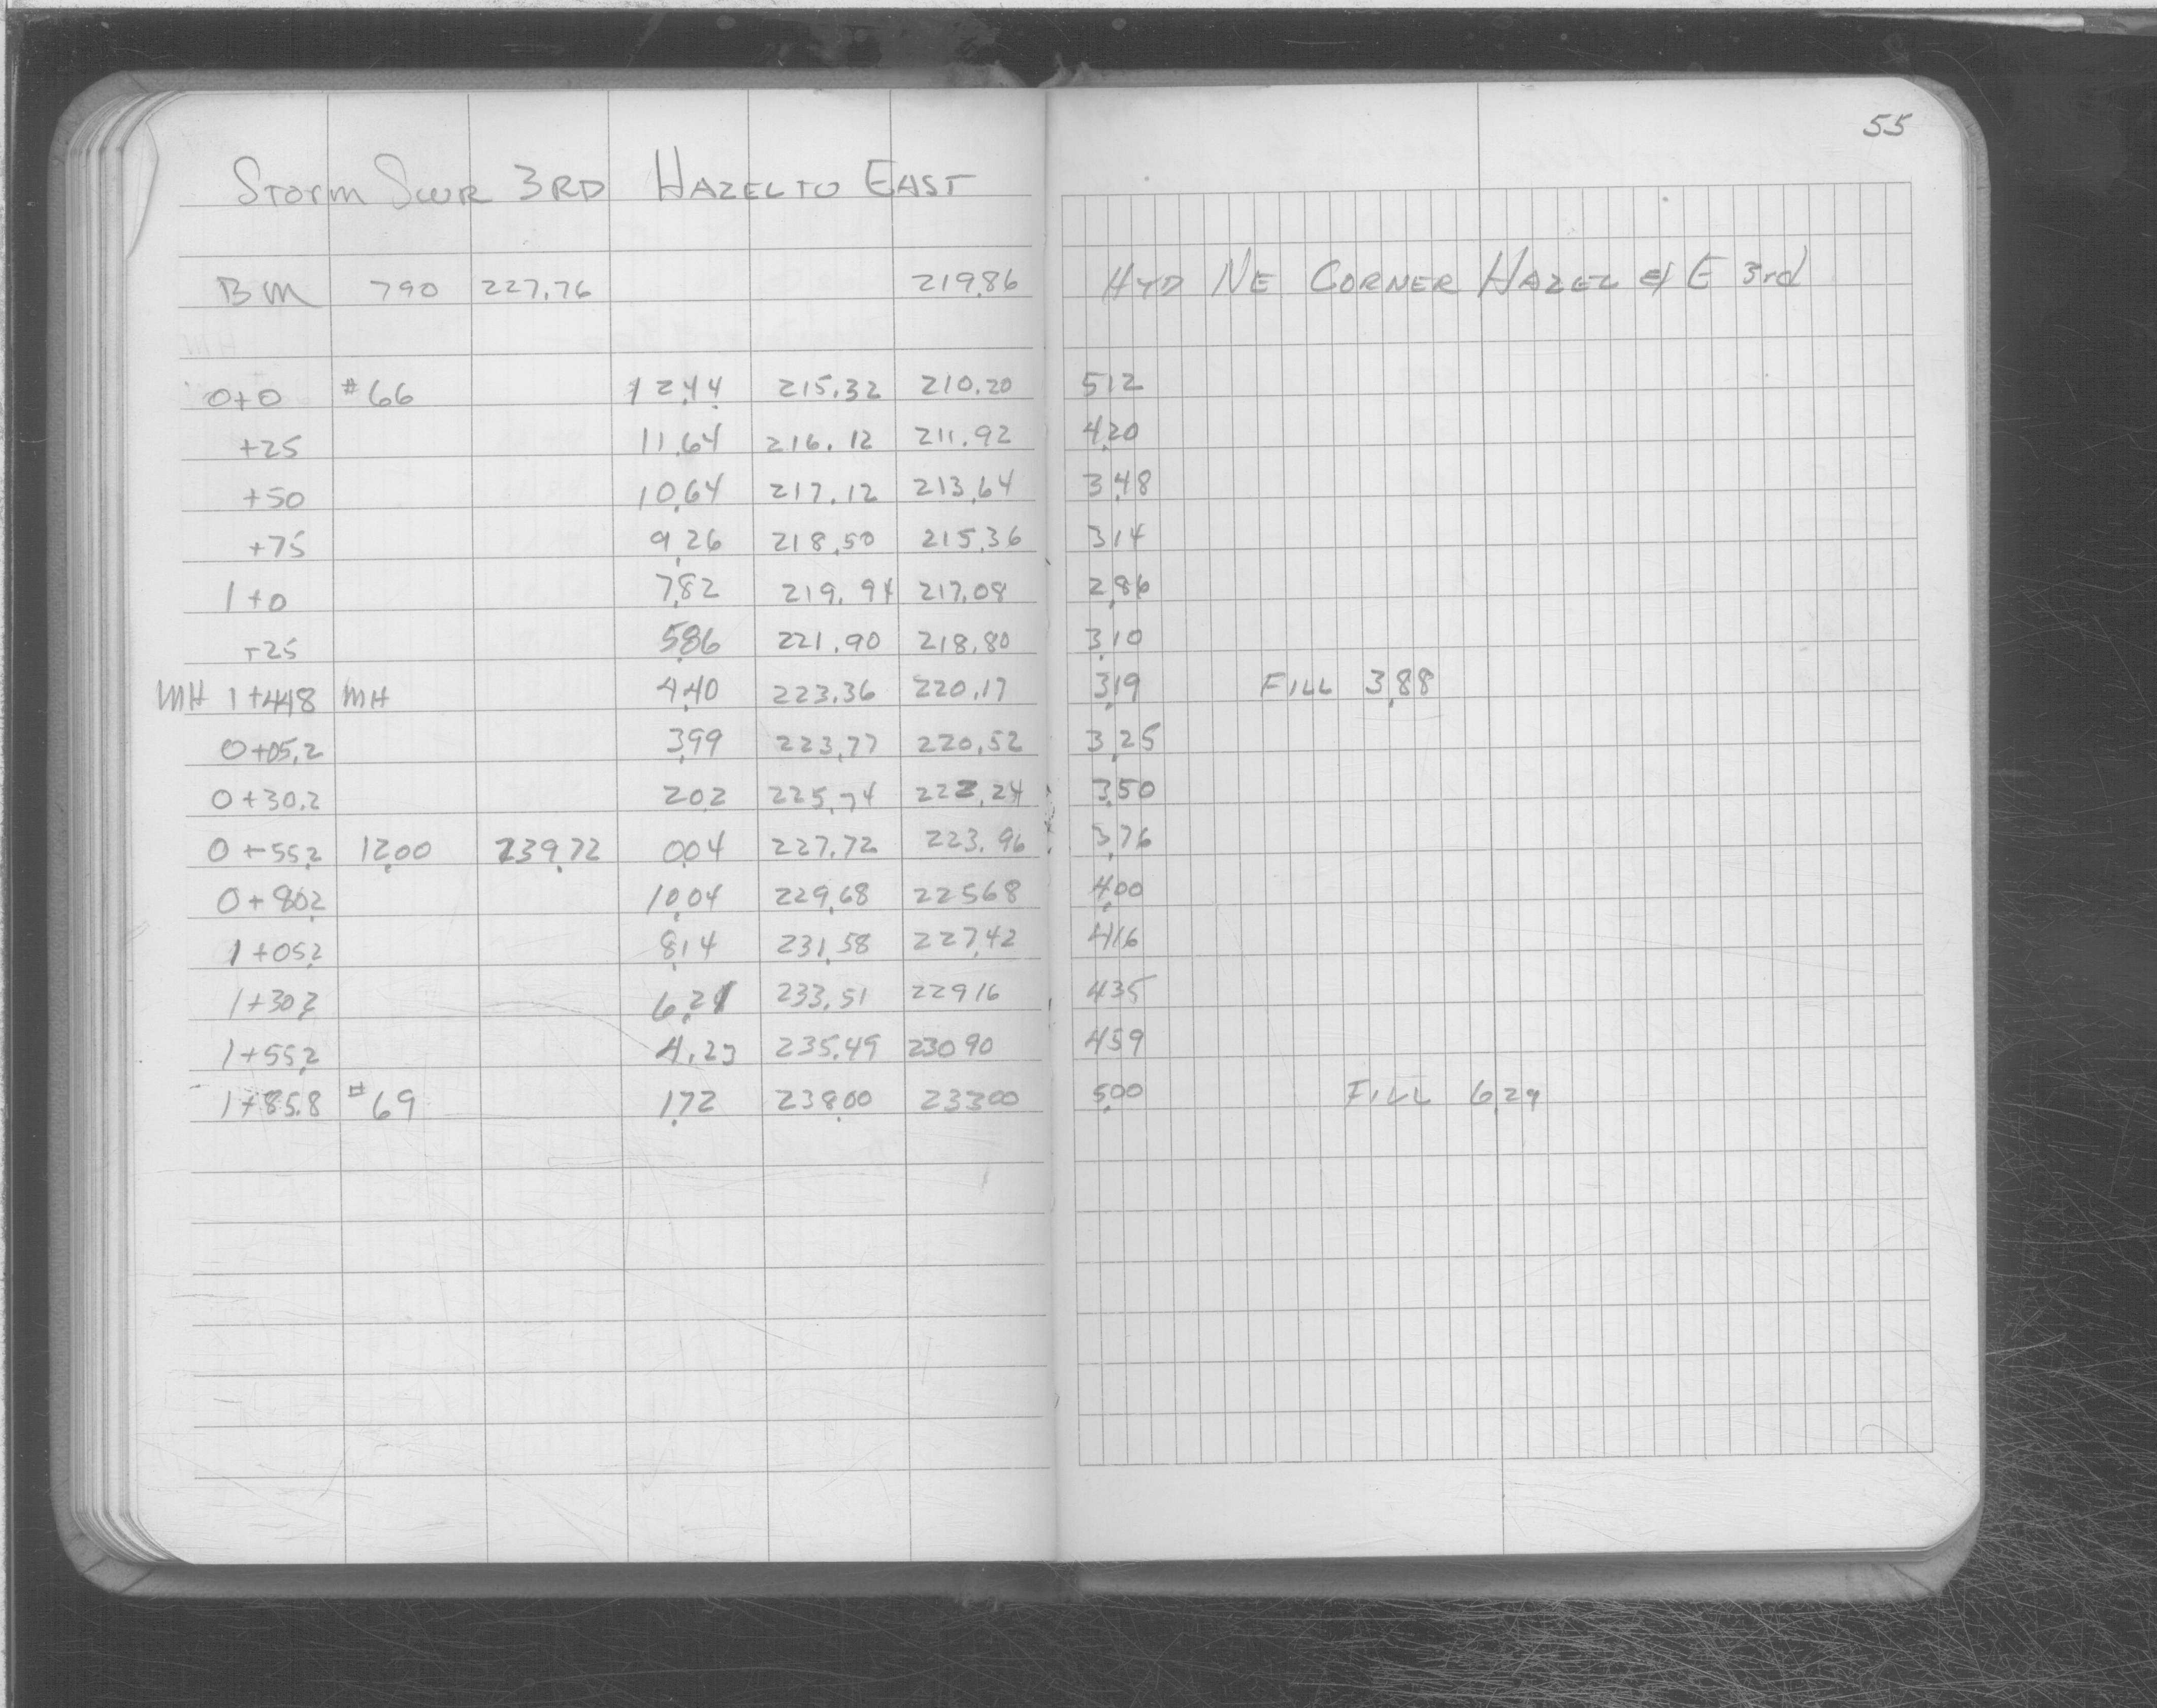 55
STORM SWR 3RD HAZEL TO EAST
BM 790 227.76 219.86 HYD NE CORNER HAZEL & E 3rd
0+0 #66 12.44 215.32 210.20 512
+25 11.64 216.12 211.92 4.20
+50 10.64 217.12 213.64 3.48
+75 9.26 218.50 215.36 314
1+0 7.82 219.94 217.08 2.86
+25 5.86 221.90 218.80 3.10
MH 1+44.8 MH 4.40 223.36 220.17 3.19 FILL 3.88
0+05.2 3.99 223.77 220.52 3.25
0+30.2 202 225.74 222.24 3.50
0+55.2 12.00 239.72 0.04 227.72 223.96 3.76
0+80.2 10.04 229.68 22568 4.00
1+05.2 8.14 231.58 227.42 416
1+30.2 6.21 233.51 22916 435
1+55.2 4.23 235.49 23090 459
1+85.8 #69 1.72 238.00 23300 5.00 FILL 6.29